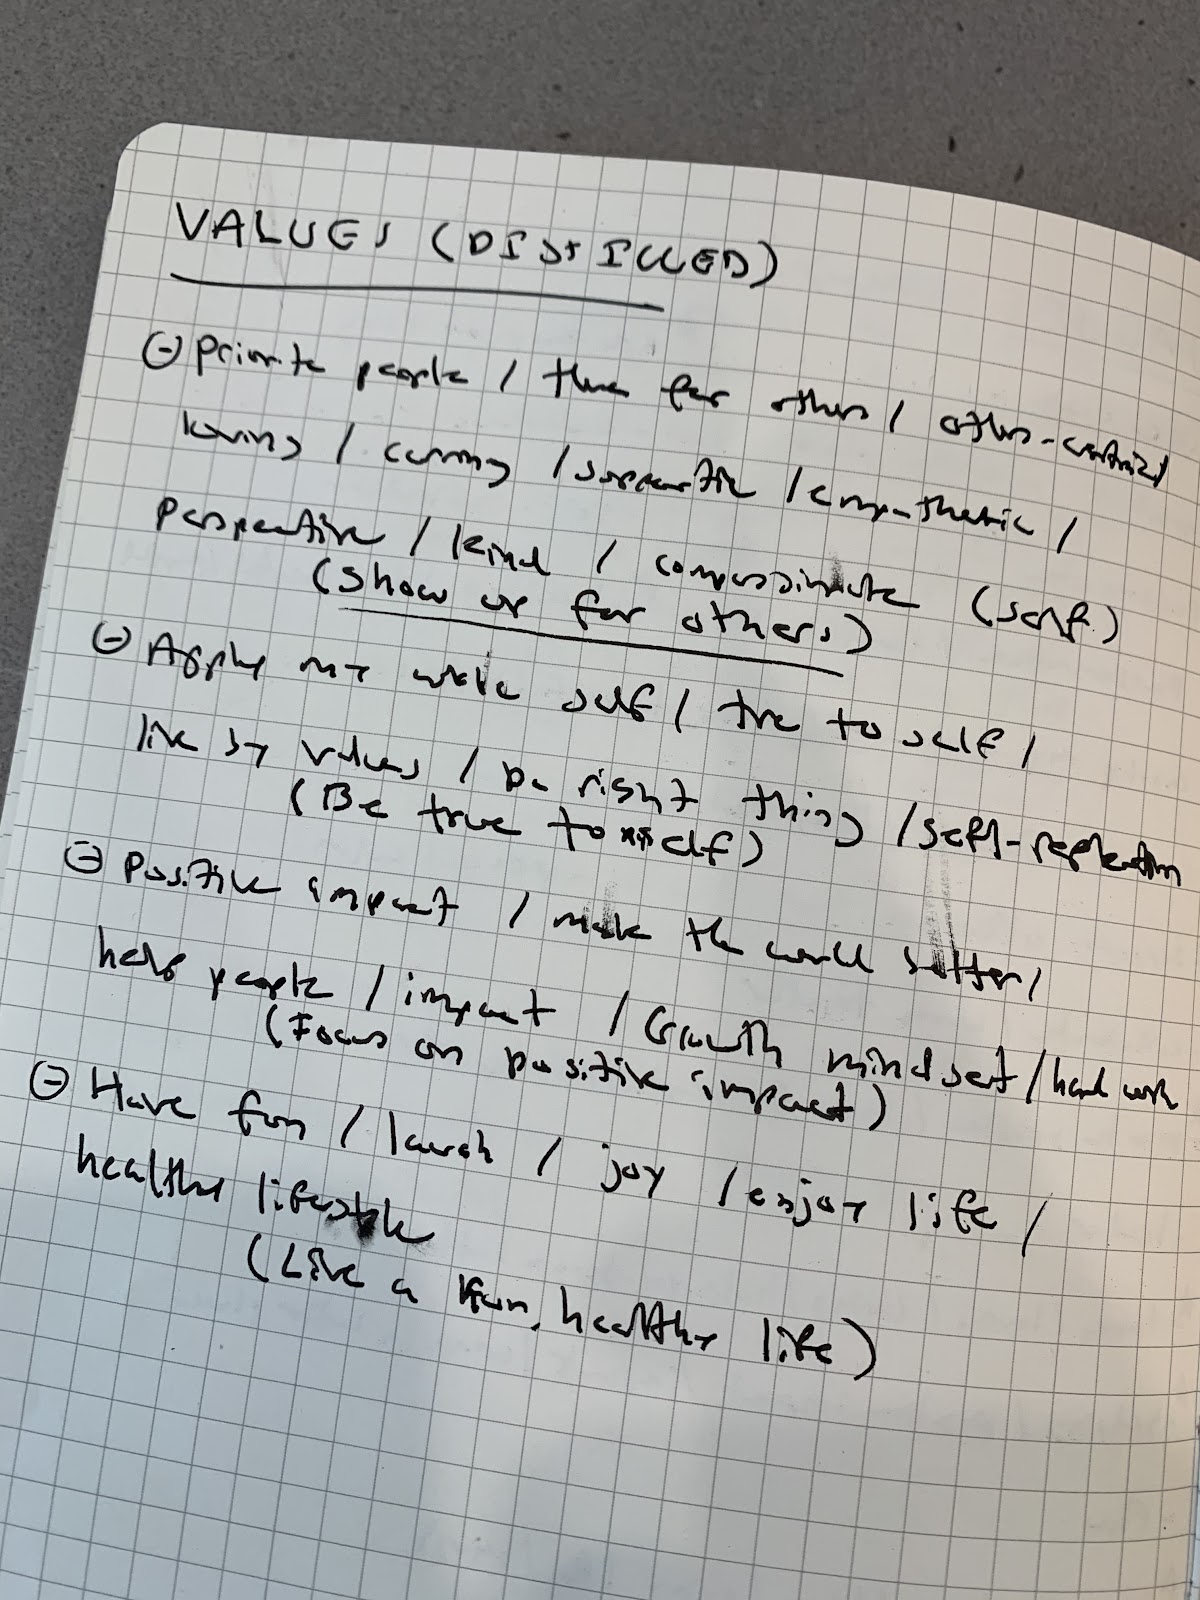 VALUES (DISTILLED)
⊖ Priorite people / there for others / others-centric /
loving / caring / supportive / empathetic /
perspective / kind / compassionate (self)
(Show up for others)
⊖ Apply my whole self / true to self /
live by values / Do right thing / self-reflection
(Be true to self)
⊖ Positive impact / make the world better /
help people / impact / Growth mindset / hard work
(Focus on positive impact)
⊖ Have fun / laugh / joy / enjoy life /
healthy lifestyle
(Live a fun, healthy life)